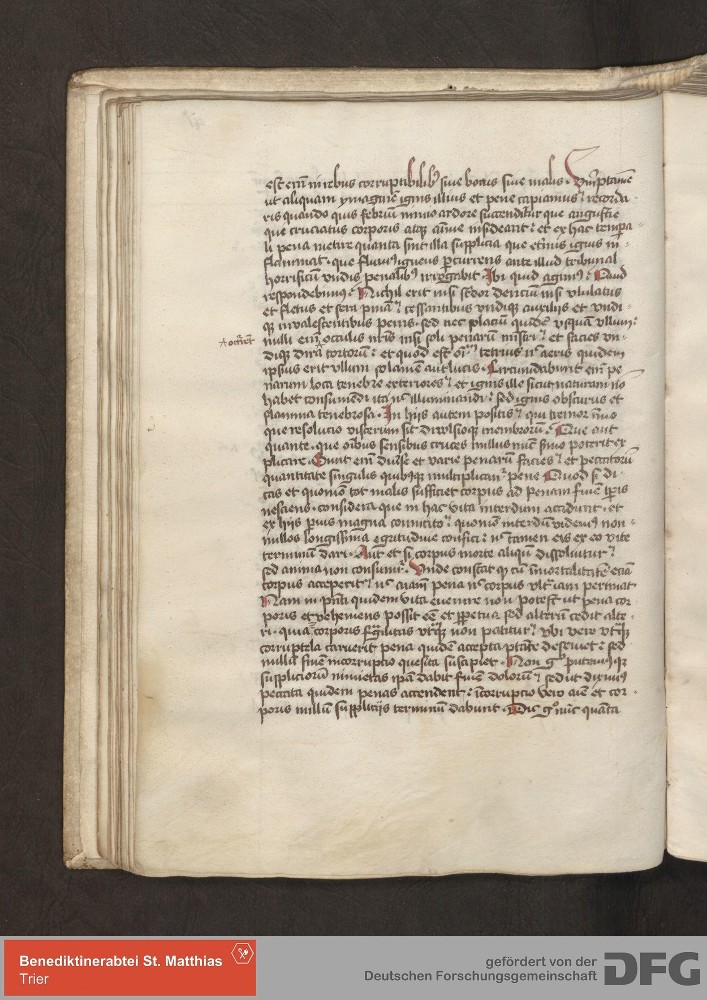 est em in rebus corruptibilibus sive bonis sive malis. Verumptamen
ut aliquam ymaginem ignis illius et pene capiamus recorda
ris quando quis febrium nimio ardore succenditur que angustie
que cruciatus corporis atque anime insideant et ex hac tempora
li pena metire quanta sint illa supplicia que eternis ignis in
flammat. que fluvius igneus percurrens ante illud tribunal
horrificum undis penalibus irrogabit. Ibi quid agimus Quid
respondebimus Nichil erit nisi stridor dencium nisi ululatus
et fletus et sera penitencia cessantibus undique auxiliis et undi
que invalescentibus penis. sed nec solacium quidem usquam ullum
nulli enim occulis nostris nisi soli penarum ministri et facies un
*occurret
dique dira tortorum et quod est omnium tetrius nec aeris quidem
ipsius erit ullum solamen aut lucis. Circumdabunt enim pe
narum loca tenebre exteriores et ignis ille sicut naturam non
habet consumendi ita nec illuminandi sed ignis obscurus et
flamma tenebrosa. In hijs autem positis qui tremor
que resolucio viscerum sit divulsioque membrorum Que aut
quante. que omnibus sensibus cruces nullus sermo poterit ex
plicare. Sunt enim diverse et varie penarum facies et peccatorum
quantitate singulis quibusque multiplicantur pene Quod si di
cas et quomodo tot malis sufficiet corpus ad penam sine temporis
nesciens. considera que in hac vita interdum accidunt. et
ex hijs parvis magna conicito quomodo interdum videmus non
nullos longissima egritudine confici nec tamen eis ex eo vite
terminum dari. Aut et si corpus morte aliquando dissolvitur
sed anima non consumitur. Unde constat quod cum immortalitatem eciam
corpus acceperit nec animam pena nec corpus ulterius iam perimat
Nam in presenti quidem vita evenire non potest ut pena cor
poris et vehemens possit esse et perpetua sed alterum cedit alte
ri. quia corporis fragilitas utrumque non patitur ubi vero utriusque
corruptela caruerit pena quidem accepta potestate deseviet sed
nullum finem incorruptio quesita suscipiet. Non ergo putemus quod
suppliciorum nimietas ipsam dabit finem dolorum sed ut diximus
peccata quidem penas accendent incorruptio vero anime et cor
poris nullum supplicijs terminum dabunt. Dic ergo nunc quanta
Benediktinerabtei St. Matthias
Trier
gefördert von der
Deutschen Forschungsgemeinschaft
DFG